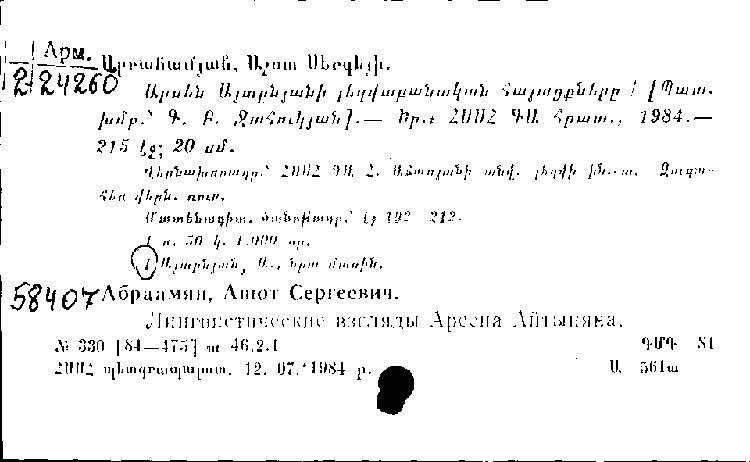 Арм.
2 24260
Աբրահամյան, Աշոտ Սերգեյի.
Արսեն Այտընյանի լեզվաբանական հայացքները / [Պատ.
խմբ.՝ Գ. Բ. Ջահուկյան].— Եր.: ՀՍՍՀ ԳԱ հրատ., 1984.—
215 էջ; 20 սմ.
Վերնախորագր.՝ ՀՍՍՀ ԳԱ Հ. Աճառյանի անվ. լեզվի ին-տ. Զուգա-
հեռ վերն. ռուս.
Մատենագիտ. ծանոթագր.՝ էջ 192—212.
1 ռ. 50 կ. 1.000 օր.
1 Այտընյան, Ա., նրա մասին.
58407 Абраамян, Ашот Сергеевич.
Лингвистические взгляды Арсена Айтыняна.
№ 330 [84—475] 46.2.1 ԳՄԴ 81
ՀՍՍՀ պետգրապալատ. 12. 07. 1984 թ. Ա 561ա